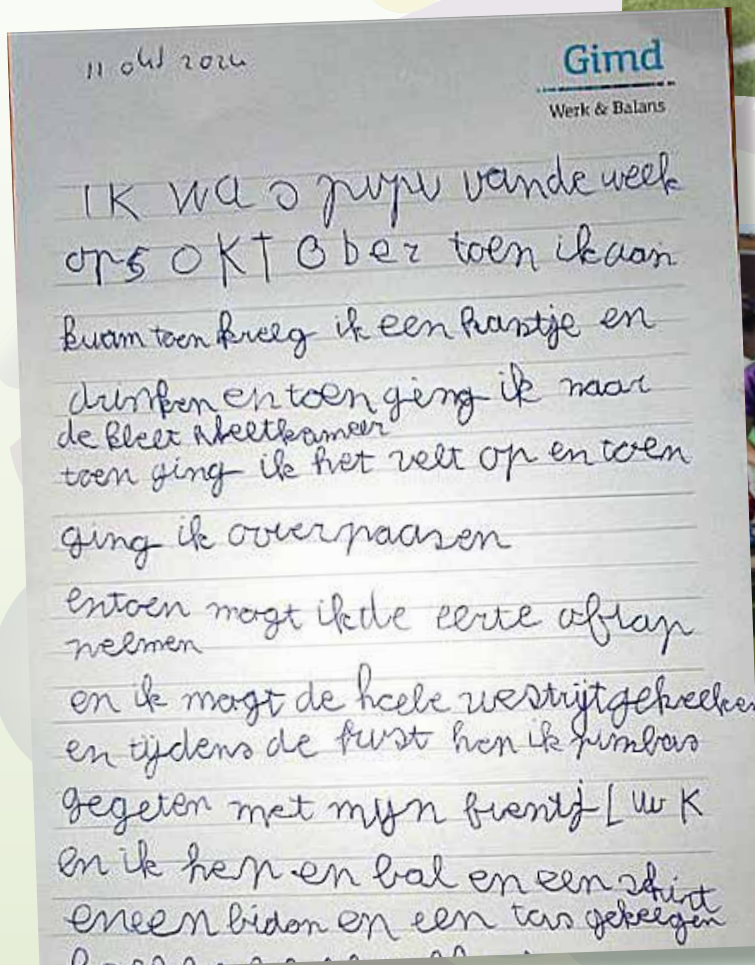 11 okt 2024
Gimd
Werk & Balans
IK was pupil vande week
op 5 OKTOber toen ik aan
kwam toen kreeg ik een kaartje en
drinken en toen ging ik naar
de kleet kleetkameer
toen ging ik het velt op en toen
ging ik overpaasen
entoen mogt ik de eerte aftrap
neemen
en ik mogt de heele westrijt gekeeken
en tijdens de rust hen ik
gegeten met mijn frentj Luuk
en ik hep en bal en een shirt
eneen bidon en een tas gekeegen